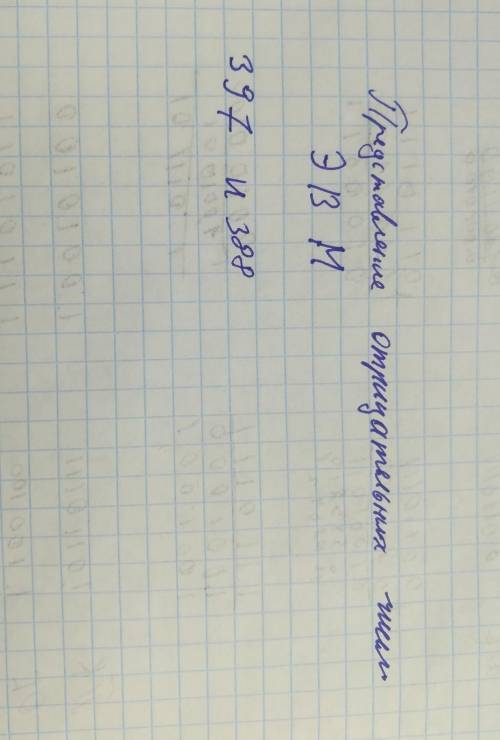 Представление отрицательных чисел
ЭВМ
397 и 388